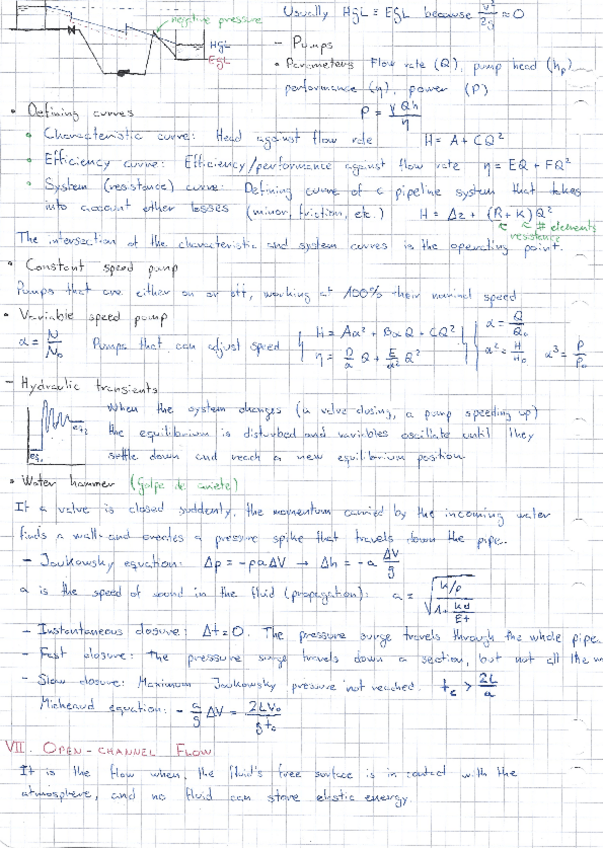 Usually HGL ≡ EGL because v²/2g ≈ 0
negative pressure
HGL
EGL
- Pumps
• Parameters Flow rate (Q), pump head (hp)
performance (η), power (P)
P = γQh/η
• Defining curves
• Characteristic curve: Head against flow rate H = A + CQ²
• Efficiency curve: Efficiency/performance against flow rate η = EQ + FQ²
• System (resistance) curve: Defining curve of a pipeline system that takes
into account other losses (minor, friction, etc.) H = Δz + (R + K)Q²
resistance # elements
The intersection of the characteristic and system curves is the operating point.
• Constant speed pump
Pumps that are either on or off, working at 100% their nominal speed
• Variable speed pump
α = N/N₀ Pumps that can adjust speed { H = Aα² + BαQ + CQ² { α = Q/Q₀
η = D/α Q + E/α² Q² α² = H/H₀ α³ = P/P₀
- Hydraulic transients
When the system changes (a valve closing, a pump speeding up)
the equilibrium is disturbed and variables oscillate until they
settle down and reach a new equilibrium position.
• Water hammer (Golpe de ariete)
If a valve is closed suddenly, the momentum carried by the incoming water
finds a wall and creates a pressure spike that travels down the pipe.
- Joukowsky equation: Δp = -ρaΔV → Δh = -a ΔV/g
a is the speed of sound in the fluid (propagation): a = √((K/ρ)/(1 + Kd/Et))
- Instantaneous closure: Δt = 0. The pressure surge travels through the whole pipe.
- Fast closure: the pressure surge travels down a section, but not all the
- Slow closure: Maximum Joukowsky pressure not reached. tc > 2L/a
Micheaud equation: - a/g ΔV = 2LV₀/gtc
VII. OPEN-CHANNEL FLOW
It is the flow when the fluid's free surface is in contact with the
atmosphere, and no fluid can store elastic energy.